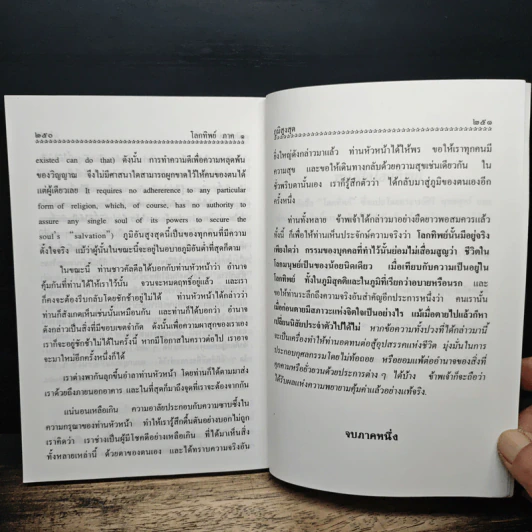 ๒๕๐ โลกทิพย์ ภาค ๑
existed can do that) ดังนั้น การทำความดีเพื่อความหลุดพ้น
ของวิญญาณ จึงไม่มีศาสนาใดสามารถผูกขาดไว้ให้คนของตนได้
แต่ผู้เดียวเลย It requires no adhererence to any particular
form of religion, which, of course, has no authority to
assure any single soul of its powers to secure the
soul's "salvation") ภูมิอันสูงสุดนี้เป็นของทุกคนที่มีความ
ตั้งใจจริง แม้ว่าผู้นั้นในขณะนี้จะอยู่ในอบายภูมิอันต่ำที่สุดก็ตาม
ในขณะนี้ ท่านชาวคัลดีลได้บอกกับท่านหัวหน้าว่า อำนาจ
คุ้มกันที่ท่านได้ให้เราไว้นั้น จวนจะหมดฤทธิ์อยู่แล้ว และเรา
ก็คงจะต้องรีบกลับโดยชักช้าอยู่ไม่ได้ ท่านหัวหน้าได้กล่าวว่า
ท่านก็สังเกตเห็นเช่นนั้นเหมือนกัน และท่านก็ได้บอกว่า อำนาจ
ดังกล่าวเป็นสิ่งที่มีขอบเขตจำกัด ดังนั้นเพื่อความผาสุกของเราเอง
เราก็จะอยู่ช้าไม่ได้ในครั้งนี้ หากมีโอกาสในคราวต่อไป เราอาจ
จะมาใหม่อีกครั้งหนึ่งก็ได้
เราต่างพากันลุกขึ้นอำลาท่านหัวหน้า โดยท่านก็ได้ตามมาส่ง
เราด้วยถึงภายนอกอาคาร และในที่สุดก็มาถึงจุดที่เราจะต้องจากกัน
แน่นอนเหลือเกิน ความอาลัยประกอบกับความซาบซึ้งใน
ความกรุณาของท่านหัวหน้า ทำให้เรารู้สึกตื้นตันอย่างบอกไม่ถูก
เราคิดว่า เราช่างเป็นผู้มีโชคดีอย่างเหลือเกิน ที่ได้มาเห็นสิ่ง
ทั้งหลายเหล่านี้ ด้วยตาของตนเอง และได้ทราบความจริงอัน
ภูมิสูงสุด ๒๕๑
ยิ่งใหญ่ดังกล่าวมาแล้ว ท่านหัวหน้าได้ให้พร ขอให้เราทุกคนมี
ความสุข และขอให้เดินทางกลับด้วยความสุขเช่นเดียวกัน ใน
ชั่วพริบตานั้นเอง เราก็รู้สึกตัวว่า ได้กลับมาสู่ภูมิของตนเองอีก
ครั้งหนึ่ง
ท่านทั้งหลาย ข้าพเจ้าได้กล่าวมาอย่างยืดยาวพอสมควรแล้ว
ทั้งนี้ ก็เพื่อให้ท่านเห็นประจักษ์ความจริงว่า โลกทิพย์นั้นมีอยู่จริง
เพียงใดว่า กรรมของบุคคลที่ทำไว้นั้นย่อมไม่เสื่อมสูญว่า ชีวิตใน
โลกมนุษย์เป็นของน้อยนิดเดียว เมื่อเทียบกับความเป็นอยู่ใน
โลกทิพย์ ทั้งในภูมิสุคติและในภูมิที่เรียกว่าอบายหรือนรก และ
ขอให้ท่านระลึกถึงความจริงอันสำคัญอีกประการหนึ่งว่า คนเรานั้น
เมื่อก่อนตายมีสภาวะแห่งจิตใจเป็นอย่างไร แม้เมื่อตายไปแล้วก็หา
เปลี่ยนนิสัยประจำตัวไปได้ไม่ หากข้อความทั้งปวงที่ได้กล่าวมานี้
จะเป็นเครื่องทำให้ท่านอดทนต่อสู้อุปสรรคแห่งชีวิต มุ่งมั่นในการ
ประกอบกุศลกรรมโดยไม่ท้อถอย หรือยอมแพ้ต่ออำนาจของสิ่งที่
คุกคามหรือยั่วยวนด้วยประการต่าง ๆ ได้บ้าง ข้าพเจ้าก็จะถือว่า
ได้รับผลแห่งความพยายามคุ้มค่าแล้วอย่างแท้จริง.
จบภาคหนึ่ง